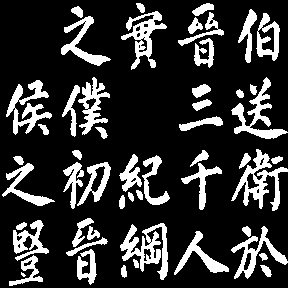 伯送衛於
晉三千人
實紀綱
之僕初晉
侯之豎